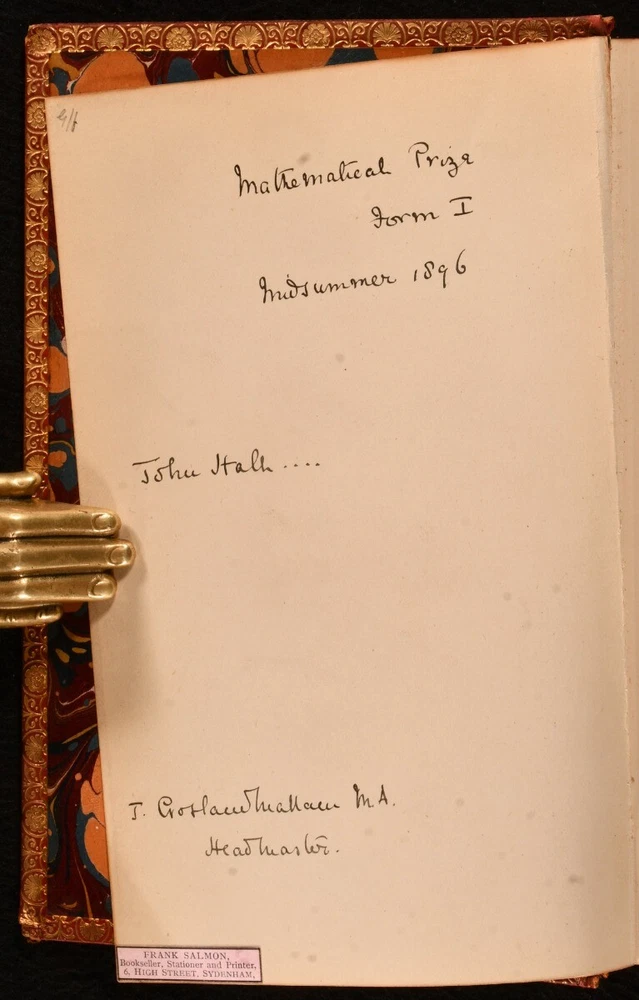 4/6
Mathematical Prize
Form I
Midsummer 1896
John Hall ....
T. M.A.
Headmaster.
FRANK SALMON,
Bookseller, Stationer and Printer,
6, HIGH STREET, SYDENHAM,